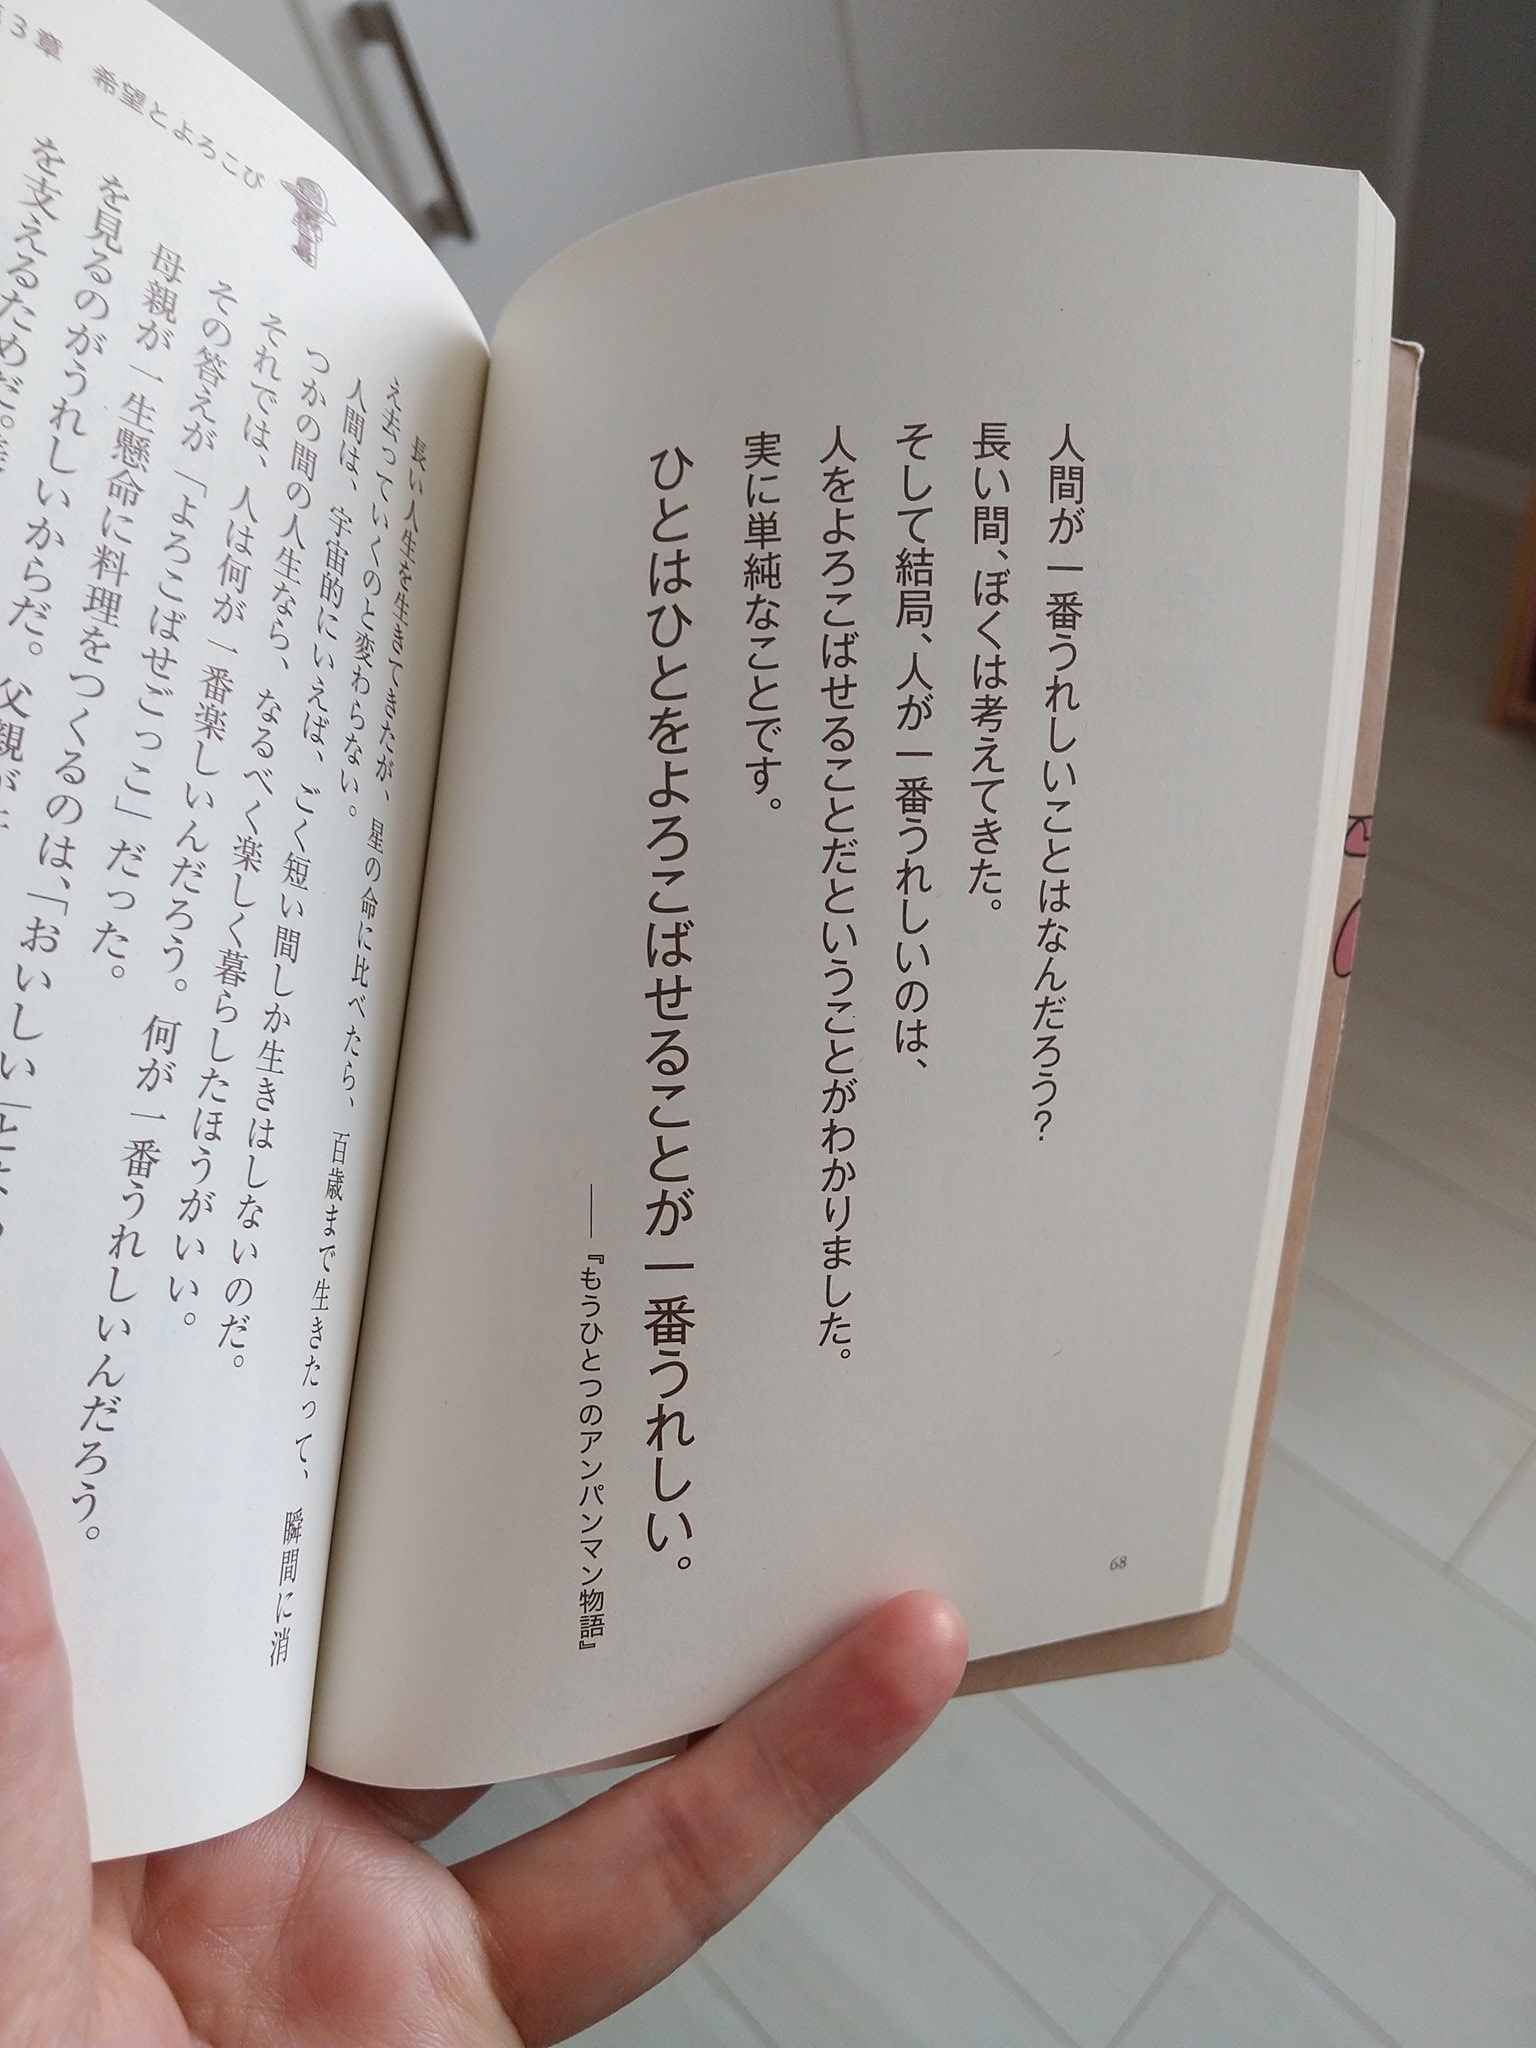 人間が一番うれしいことはなんだろう？
長い間、ぼくは考えてきた。
そして結局、人が一番うれしいのは、
人をよろこばせることだということがわかりました。
実に単純なことです。
ひとはひとをよろこばせることが一番うれしい。
――『もうひとつのアンパンマン物語』
68
3章 希望とよろこび
長い人生を生きてきたが、星の命に比べたら、百歳まで生きたって、瞬間に消
え去っていくのと変わらない。
人間は、宇宙的にいえば、ごく短い間しか生きはしないのだ。
つかの間の人生なら、なるべく楽しく暮らしたほうがいい。
それでは、人は何が一番楽しいんだろう。何が一番うれしいんだろう。
その答えが「よろこばせごっこ」だった。
母親が一生懸命に料理をつくるのは、「おいしい」と
を見るのがうれしいからだ。父親が
を支えるためだ。